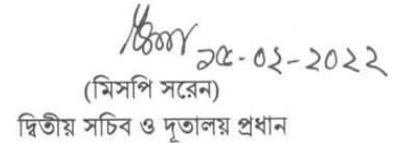 ২৫-০২-২০২২
(মিসপি সরেন)
দ্বিতীয় সচিব ও দূতালয় প্রধান